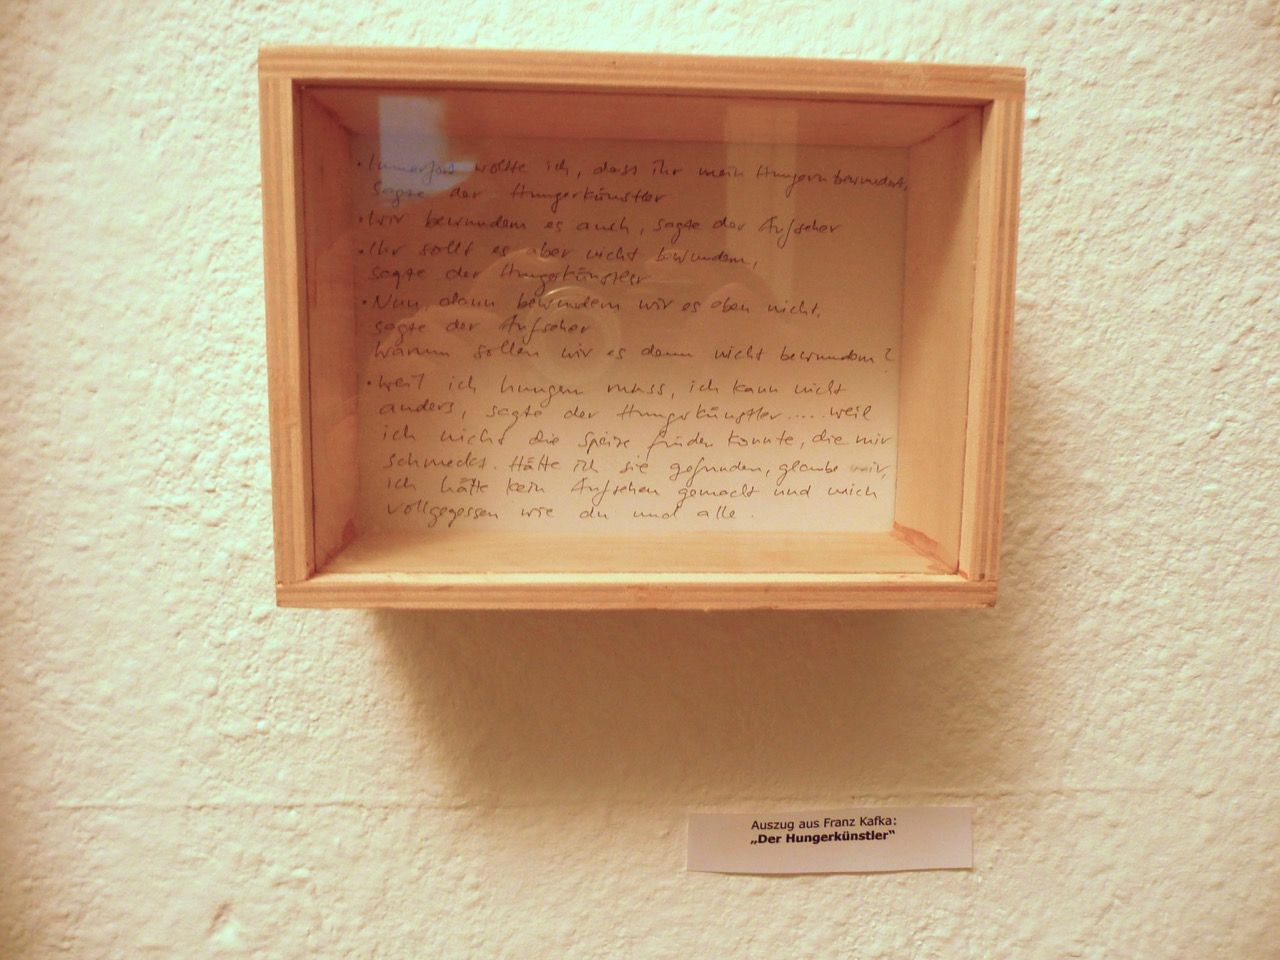 • Immerfort wollte ich, dass ihr mein Hungern bewundert,
sagte der Hungerkünstler
• Wir bewundern es auch, sagte der Aufseher
• Ihr sollt es aber nicht bewundern,
sagte der Hungerkünstler
• Nun, dann bewundern wir es eben nicht,
sagte der Aufseher
Warum sollen wir es denn nicht bewundern?
• Weil ich hungern muss, ich kann nicht
anders, sagte der Hungerkünstler..... weil
ich nicht die Speise finden konnte, die mir
schmeckt. Hätte ich sie gefunden, glaube mir,
ich hätte kein Aufsehen gemacht und mich
vollgegessen wie du und alle.
Auszug aus Franz Kafka:
„Der Hungerkünstler“